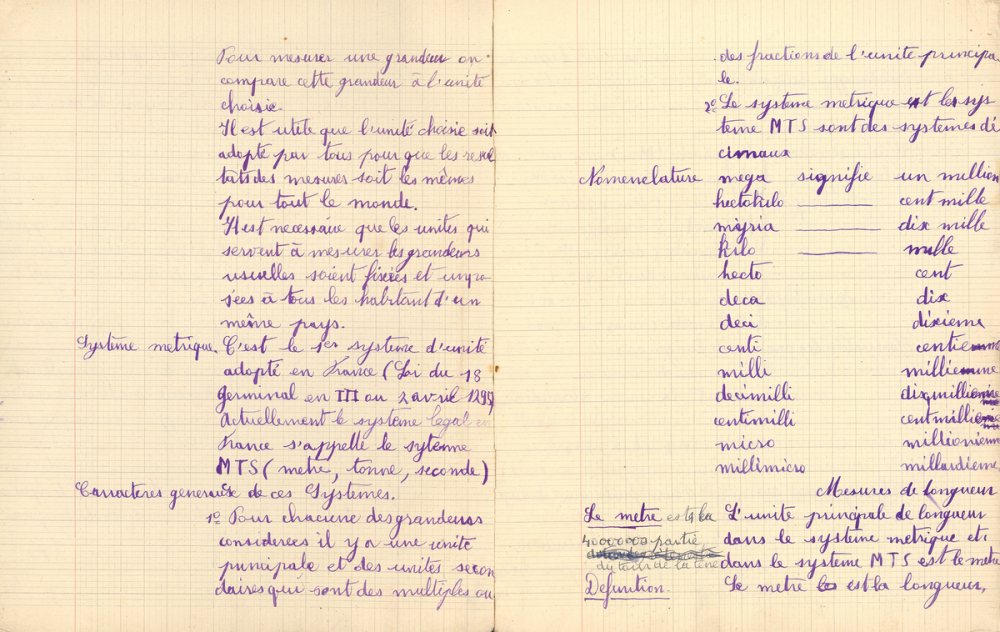 Pour mesurer une grandeur on
compare cette grandeur à l'unité
choisie.
Il est utile que l'unité choisie soit
adopté par tous pour que les resul
tats des mesures soit les mêmes
pour tout le monde.
Il est necessaire que les unites qui
servent à mesurer les grandeurs
usuelles soient fixées et impo
sées à tous les habitant d'un
même pays.
Système metrique. C'est le 1er systeme d'unité
adopté en France (Loi du 18
Germinal en III ou 2 avril 1295)
Actuellement le système legal en
France s'appelle le sytemme
MTS (metre, tonne, seconde)
Carracteres generaux de ces Systemes.
1º Pour chacune des grandeurs
considerées il y a une unité
principale et des unités secon
daires qui sont des multiples ou
des fractions de l'unite principa
le.
2º Le systeme metrique et le sys
teme MTS sont des systemes dé
cimaux
Nomenclature mega signifie un million
hectokilo cent mille
myria dix mille
kilo mille
hecto cent
deca dix
deci dixieme
centi centieme
milli millieme
decimilli dix millieme
centimilli cent millieme
micro millionieme
millimicro milliardieme
Mesures de longueur
Le metre est la L'unité principale de longueur
40000000 partie dans le système metrique et
du tour de la terre dans le système MTS est le metre
Definition. Le metre est la longueur,